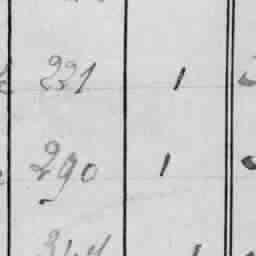 221 1
290 1